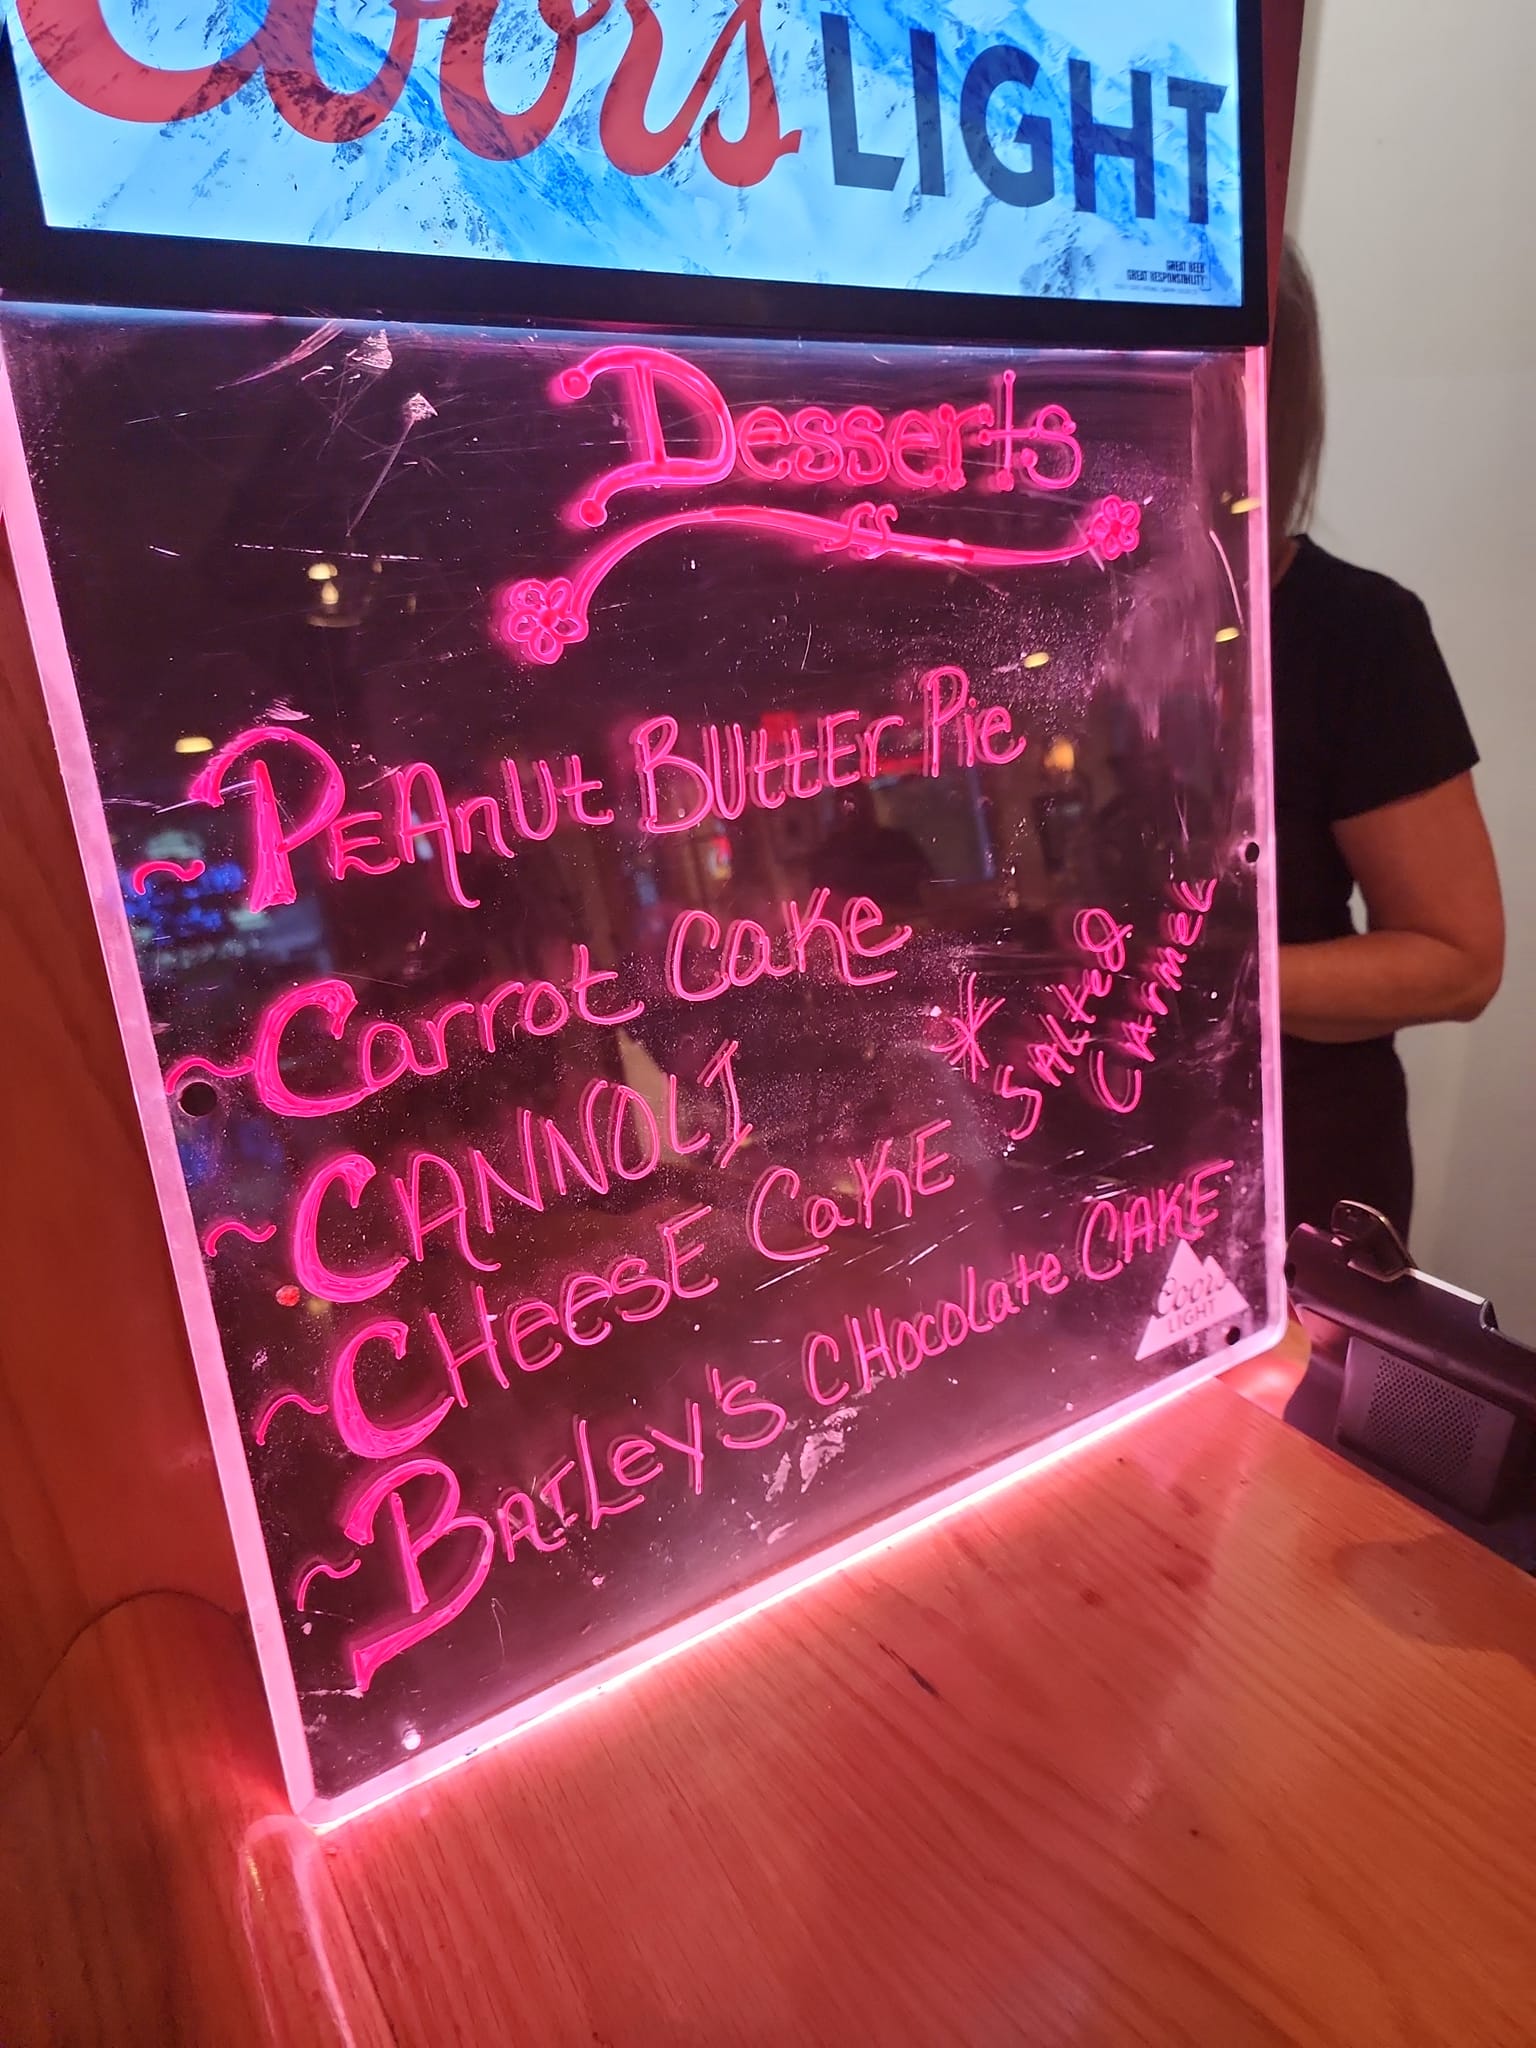 Coors LIGHT
GREAT BEER
GREAT RESPONSIBILITY
Desserts
~ PEAnUt BUttEr Pie
~ Carrot Cake
~ CANNOLI
~ CHeesE CaKE * SAlted
CArmel
~ BAILey's CHocolate CAKE
Coors
LIGHT